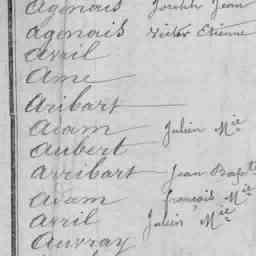 Agenais Joseph Jean
Agenais Victor Etienne
Avril
Ame
Aribart
Adam Julien Mie
Aubert
Arribart Jean Bapte
Adam françois Mie
Avril Julien Mie
Auvray